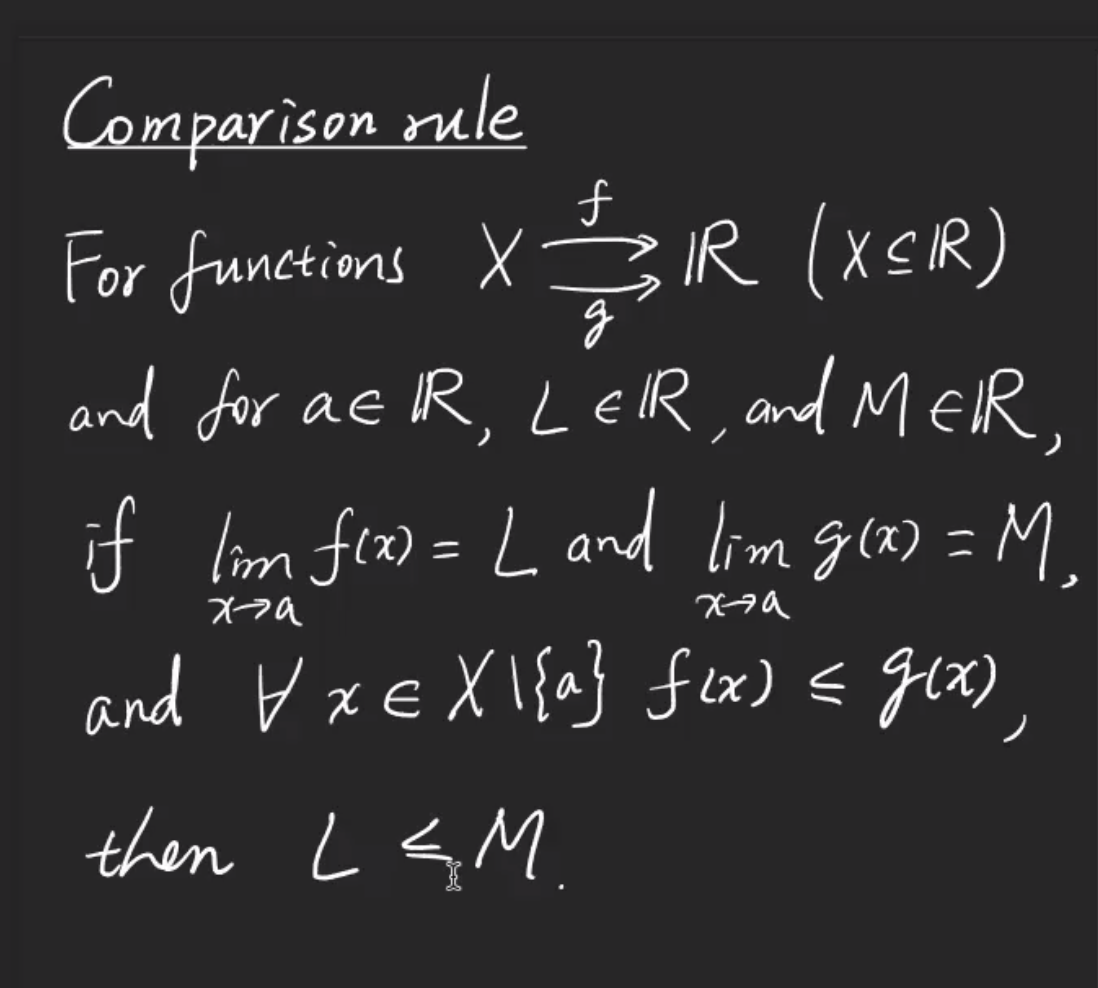 Comparison rule
For functions X f⇉g ℝ (X ⊆ ℝ)
and for a ∈ ℝ, L ∈ ℝ, and M ∈ ℝ,
if lim x→a f(x) = L and lim x→a g(x) = M,
and ∀ x ∈ X \ {a} f(x) ≤ g(x),
then L ≤ M.